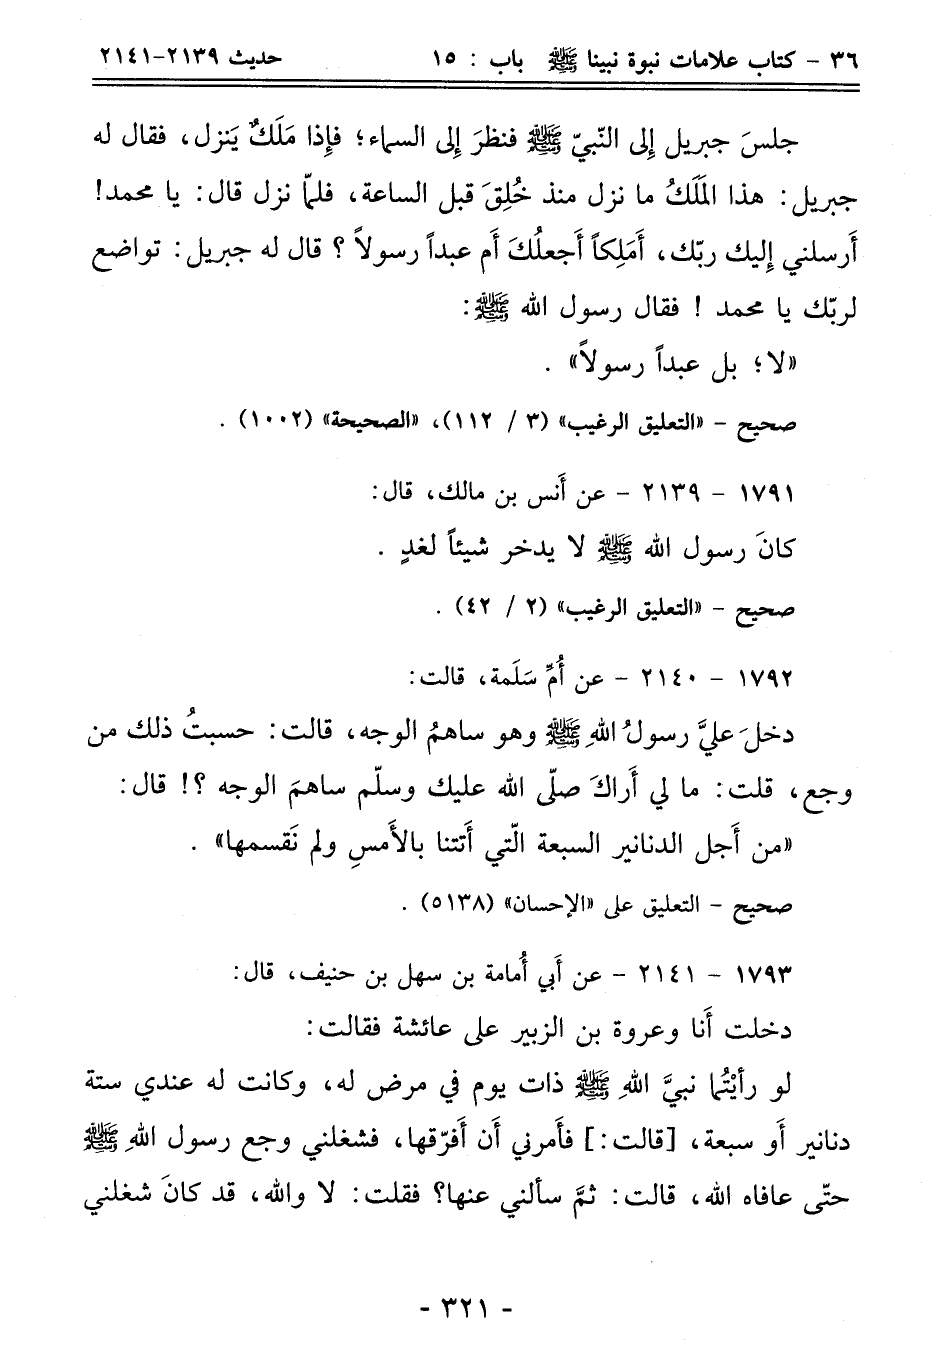 ٣٦ - كتاب علامات نبوة نبينا ﷺ باب : ١٥ حديث ٢١٣٩-٢١٤١
جلسَ جبريل إلى النّبيّ ﷺ فنظرَ إلى السماء؛ فإذا مَلَكٌ يَنزل، فقال له
جبريل: هذا المَلَكُ ما نزل منذ خُلِقَ قبل الساعة، فلمّا نزل قال: يا محمد!
أرسلني إليك ربّك، أَمَلِكاً أجعلُكَ أم عبداً رسولاً ؟ قال له جبريل: تواضع
لربّك يا محمد ! فقال رسول الله ﷺ:
«لا؛ بل عبداً رسولاً» .
صحيح - «التعليق الرغيب» (٣ / ١١٢)، «الصحيحة» (١٠٠٢) .
١٧٩١ - ٢١٣٩ - عن أَنس بن مالك، قال:
كانَ رسول الله ﷺ لا يدخر شيئاً لغدٍ .
صحيح - «التعليق الرغيب» (٢ / ٤٢) .
١٧٩٢ - ٢١٤٠ - عن أُمِّ سَلَمة، قالت:
دخلَ عليَّ رسولُ اللهِ ﷺ وهو ساهمُ الوجه، قالت: حسبتُ ذلك من
وجع، قلت: ما لي أَراكَ صلّى الله عليك وسلّم ساهمَ الوجه ؟! قال:
«من أَجل الدنانير السبعة الّتي أَتتنا بالأَمسِ ولم نَقسمها» .
صحيح - التعليق على «الإحسان» (٥١٣٨) .
١٧٩٣ - ٢١٤١ - عن أَبي أُمامة بن سهل بن حنيف، قال:
دخلت أَنا وعروة بن الزبير على عائشة فقالت:
لو رأيْتُما نبيَّ اللهِ ﷺ ذات يوم في مرض له، وكانت له عندي ستة
دنانير أَو سبعة، [قالت:] فأَمرني أَن أَفرّقها، فشغلني وجع رسول اللهِ ﷺ
حتّى عافاه الله، قالت: ثمَّ سألني عنها؟ فقلت: لا والله، قد كانَ شغلني
- ٣٢١ -